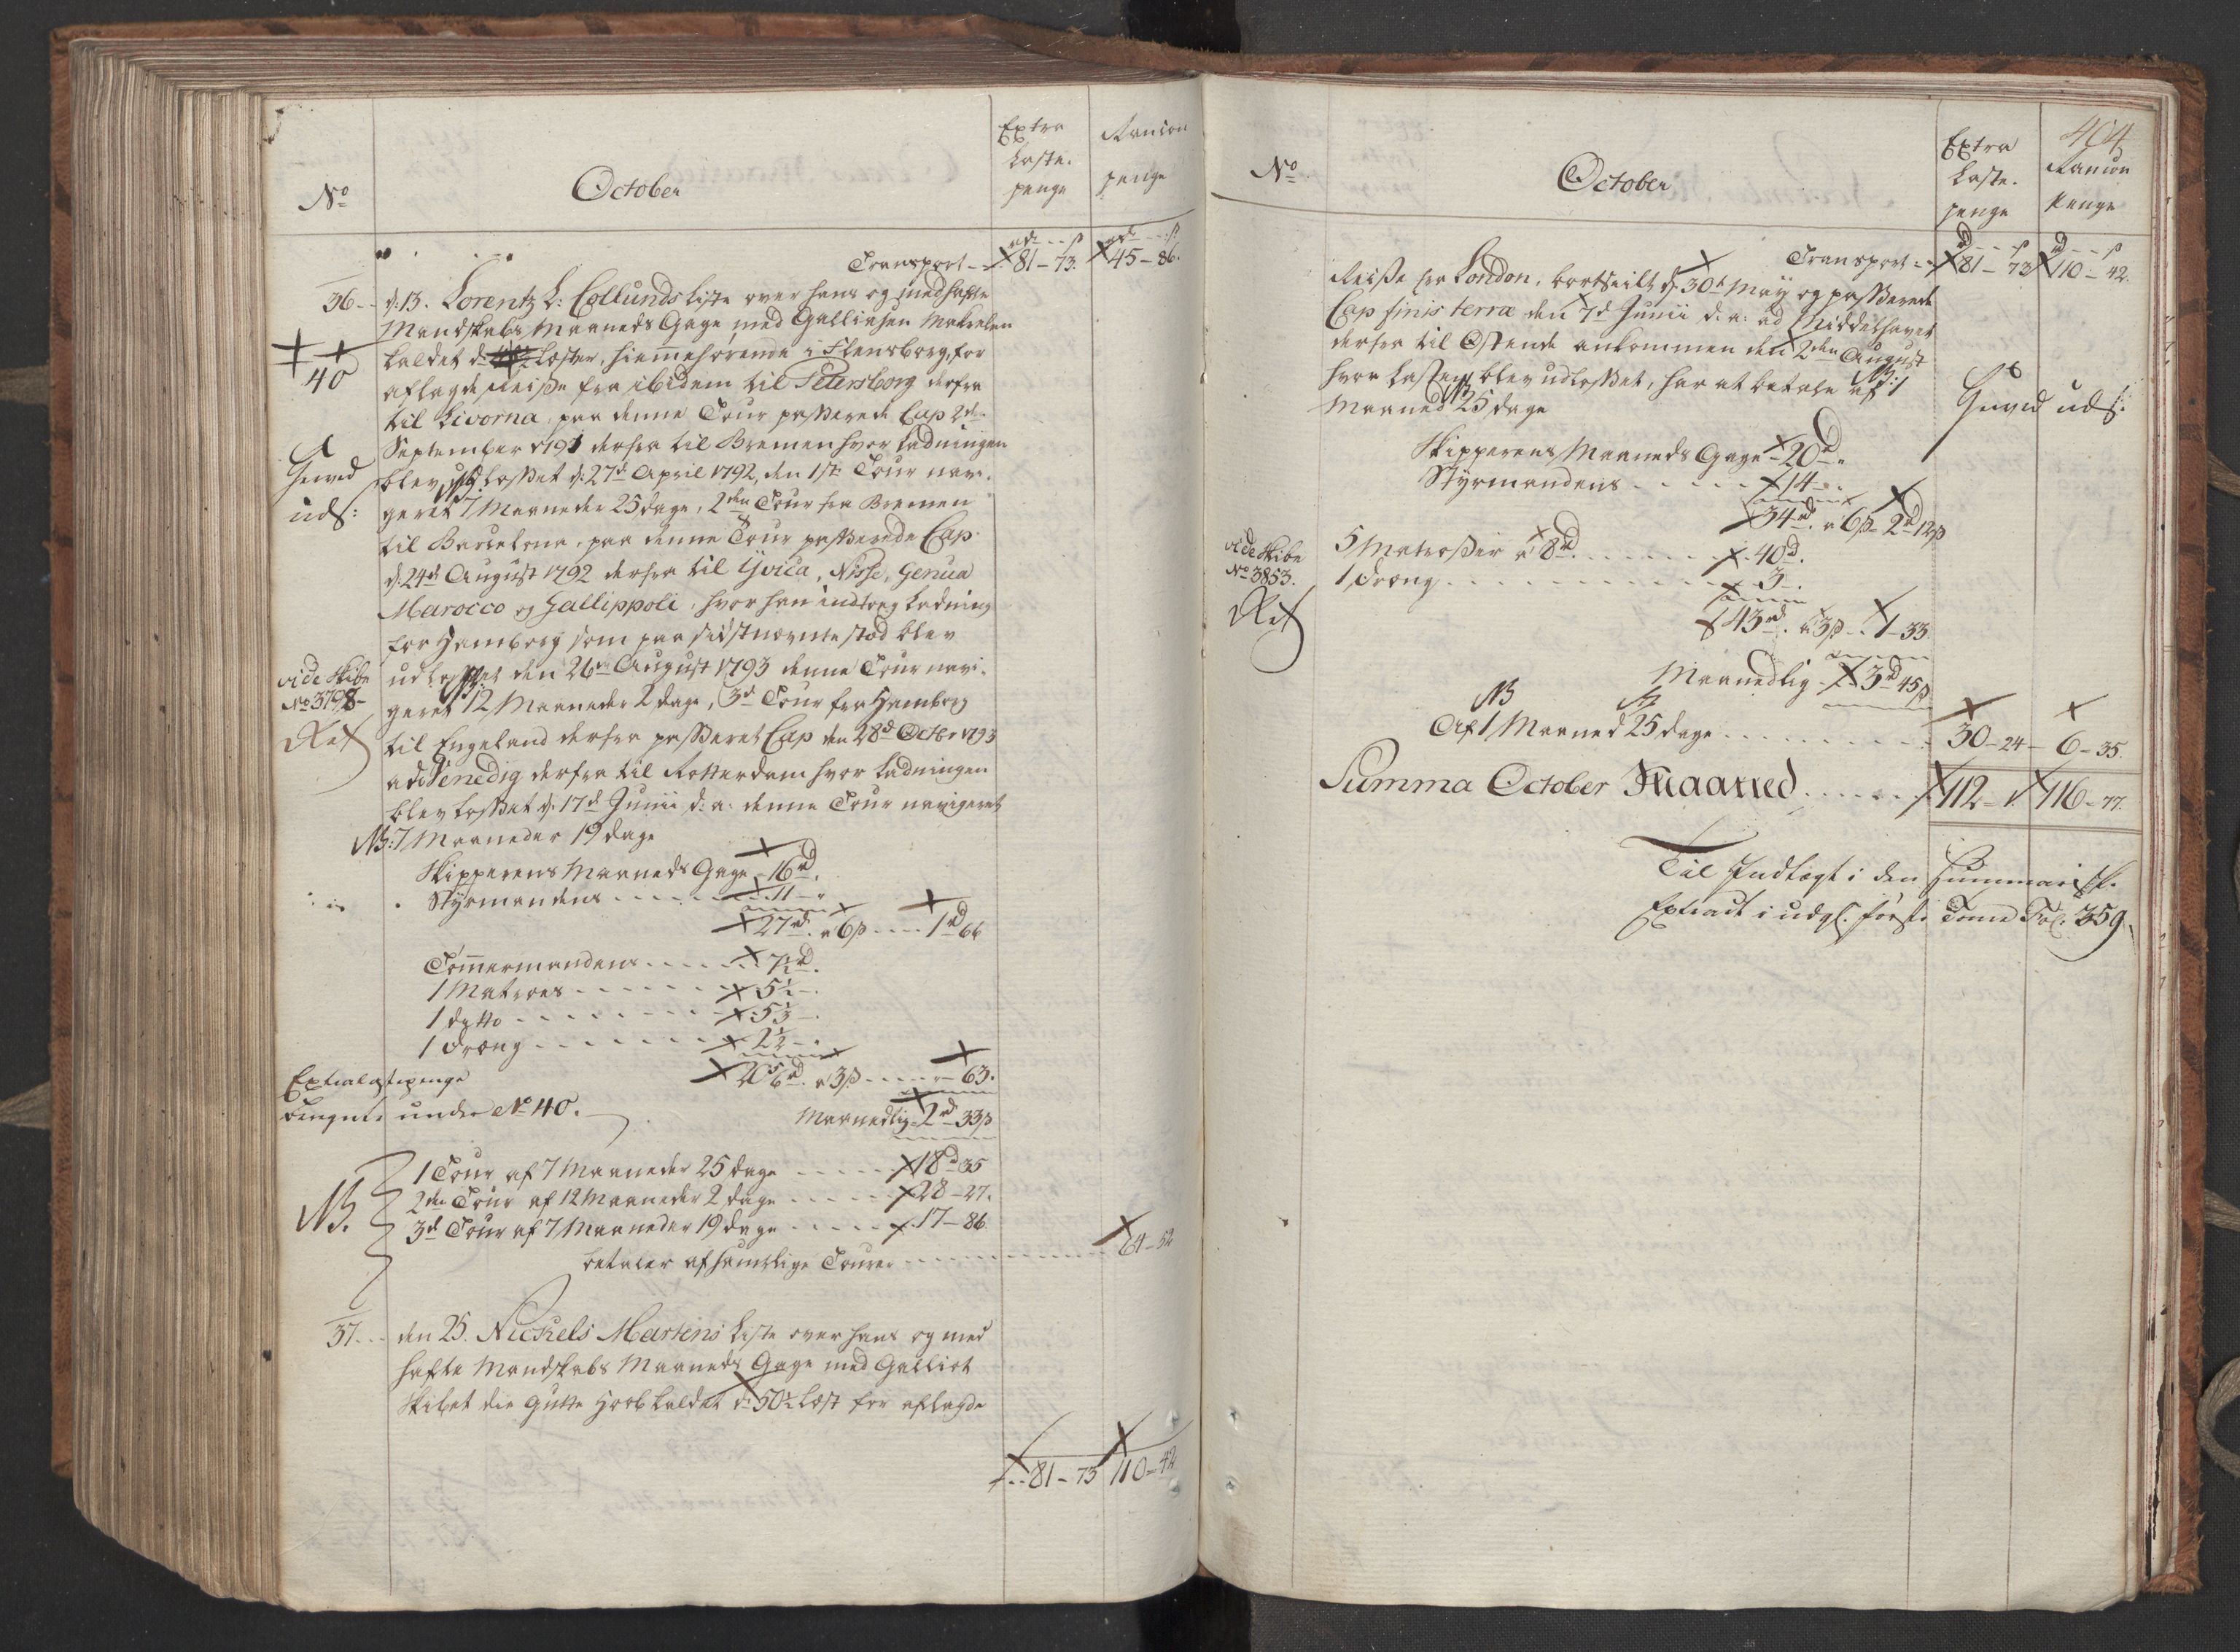 No
October
Extra
Laste.
penge
Rancion
penge
Transport - - 81 - 73. 45 - 86.
36 - - d: 13. Lorentz L: Collunds Liste over hans og medhafte
Mandskabs Maaneds Gage med Galliasen Makrelen
40
kaldet d: Læster, hiemmehørende i Flensborg, for
aflagde Reise fra ibidem til Petersborg derfra
til Livorna, paa denne Tour passerede Cap 2de
September 1791 derfra til Bremen hvor Ladningen
blev udlosset d: 27de April 1792, den 1ste Tour navi-
geret 7 Maaneder 25 dage, 2den Tour fra Bremen
til Barcelona, paa denne Tour passerede Cap
d. 24de August 1792 derfra til Yvica, Nisse, Genua
Marocco og Gallippoli, hvor han indtog Ladning
for Hamborg som paa sidstnævnte stæd blev
vide Skibs
No 3798
Ret
udlosset den 26de August 1793 denne Tour navi-
geret 12 Maaneder 2 dage, 3de Tour fra Hamborg
til Engeland derfra passeret Cap den 28de Octbr 1793
ad Venedig derfra til Rotterdam hvor Ladningen
blev losset d: 17de Junii d: a: denne Tour navigeret
NB: 7 Maaneder 19 dage
Skipperens Maaneds Gage - 16 rd.
Styrmandens - - - - - 11 - "
27 rd. a 6 ß - - - 1 rd 66
Tømmermandens - - - - 7½ rd.
1 Matros - - - - - - 5½ - .
1 dytto - - - - - - - 5⅓ - .
1 Dreng - - - - - - 2½ - .
a 3 ß - - - - 63.
Extralastepenge
beregnet under No 40.
Maanedlig - 2 rd 33 ß
NB.
1 Tour af 7 Maaneder 25 dage - - - - - 18 rd 35
2den Tour af 12 Maaneder 2 dage - - - - 28 - 27.
3de Tour af 7 Maaneder 19 dage - - - - - 17 - 86
betaler af samtlige Tourer - - - - - - 64 - 52
37 - - den 25. Nickels Martens Liste over hans og med
hafte Mandskabs Maaneds Gage med Galliot
Skibet die Gutte Hoob kaldet d: 50½ Læst for aflagde
- - 81 - 73 110 - 42
404
No
October
Extra
Laste.
penge
Rancion
Penge
Transport - - 81 - 73 110 - 42.
Reise fra London, bortseilt d. 30te May og passerede
Cap finis terra den 7de Junii d: a: ad Middelhavet
derfra til Ostende ankommen den 2den August
hvor Lasten blev udlosset, har at betale af 1
Maaned 25 dage
Skipperens Maaneds Gage - 20 rd "
Styrmandens - - - - - 14 - .
34 rd. a 6 ß - 2 rd 12 ß
vide Skibs
No 3853.
Ret
5 Matroser a 8 rd. - - - - - - 40 rd.
1 Dreng - - - - - - - - - 3 - .
43 rd. a 3 ß - - 1 - 33.
Maanedlig - - 3 rd 45 ß
NB
Af 1 Maaned 25 dage - - - - - - - - - 30 - 24 - 6 - 35.
Summa October Maaned - - - - - 112 - 1. 116 - 77.
Til Indtægt i den Summarisk.
Extract i udgl. første Tome Fol: 359.